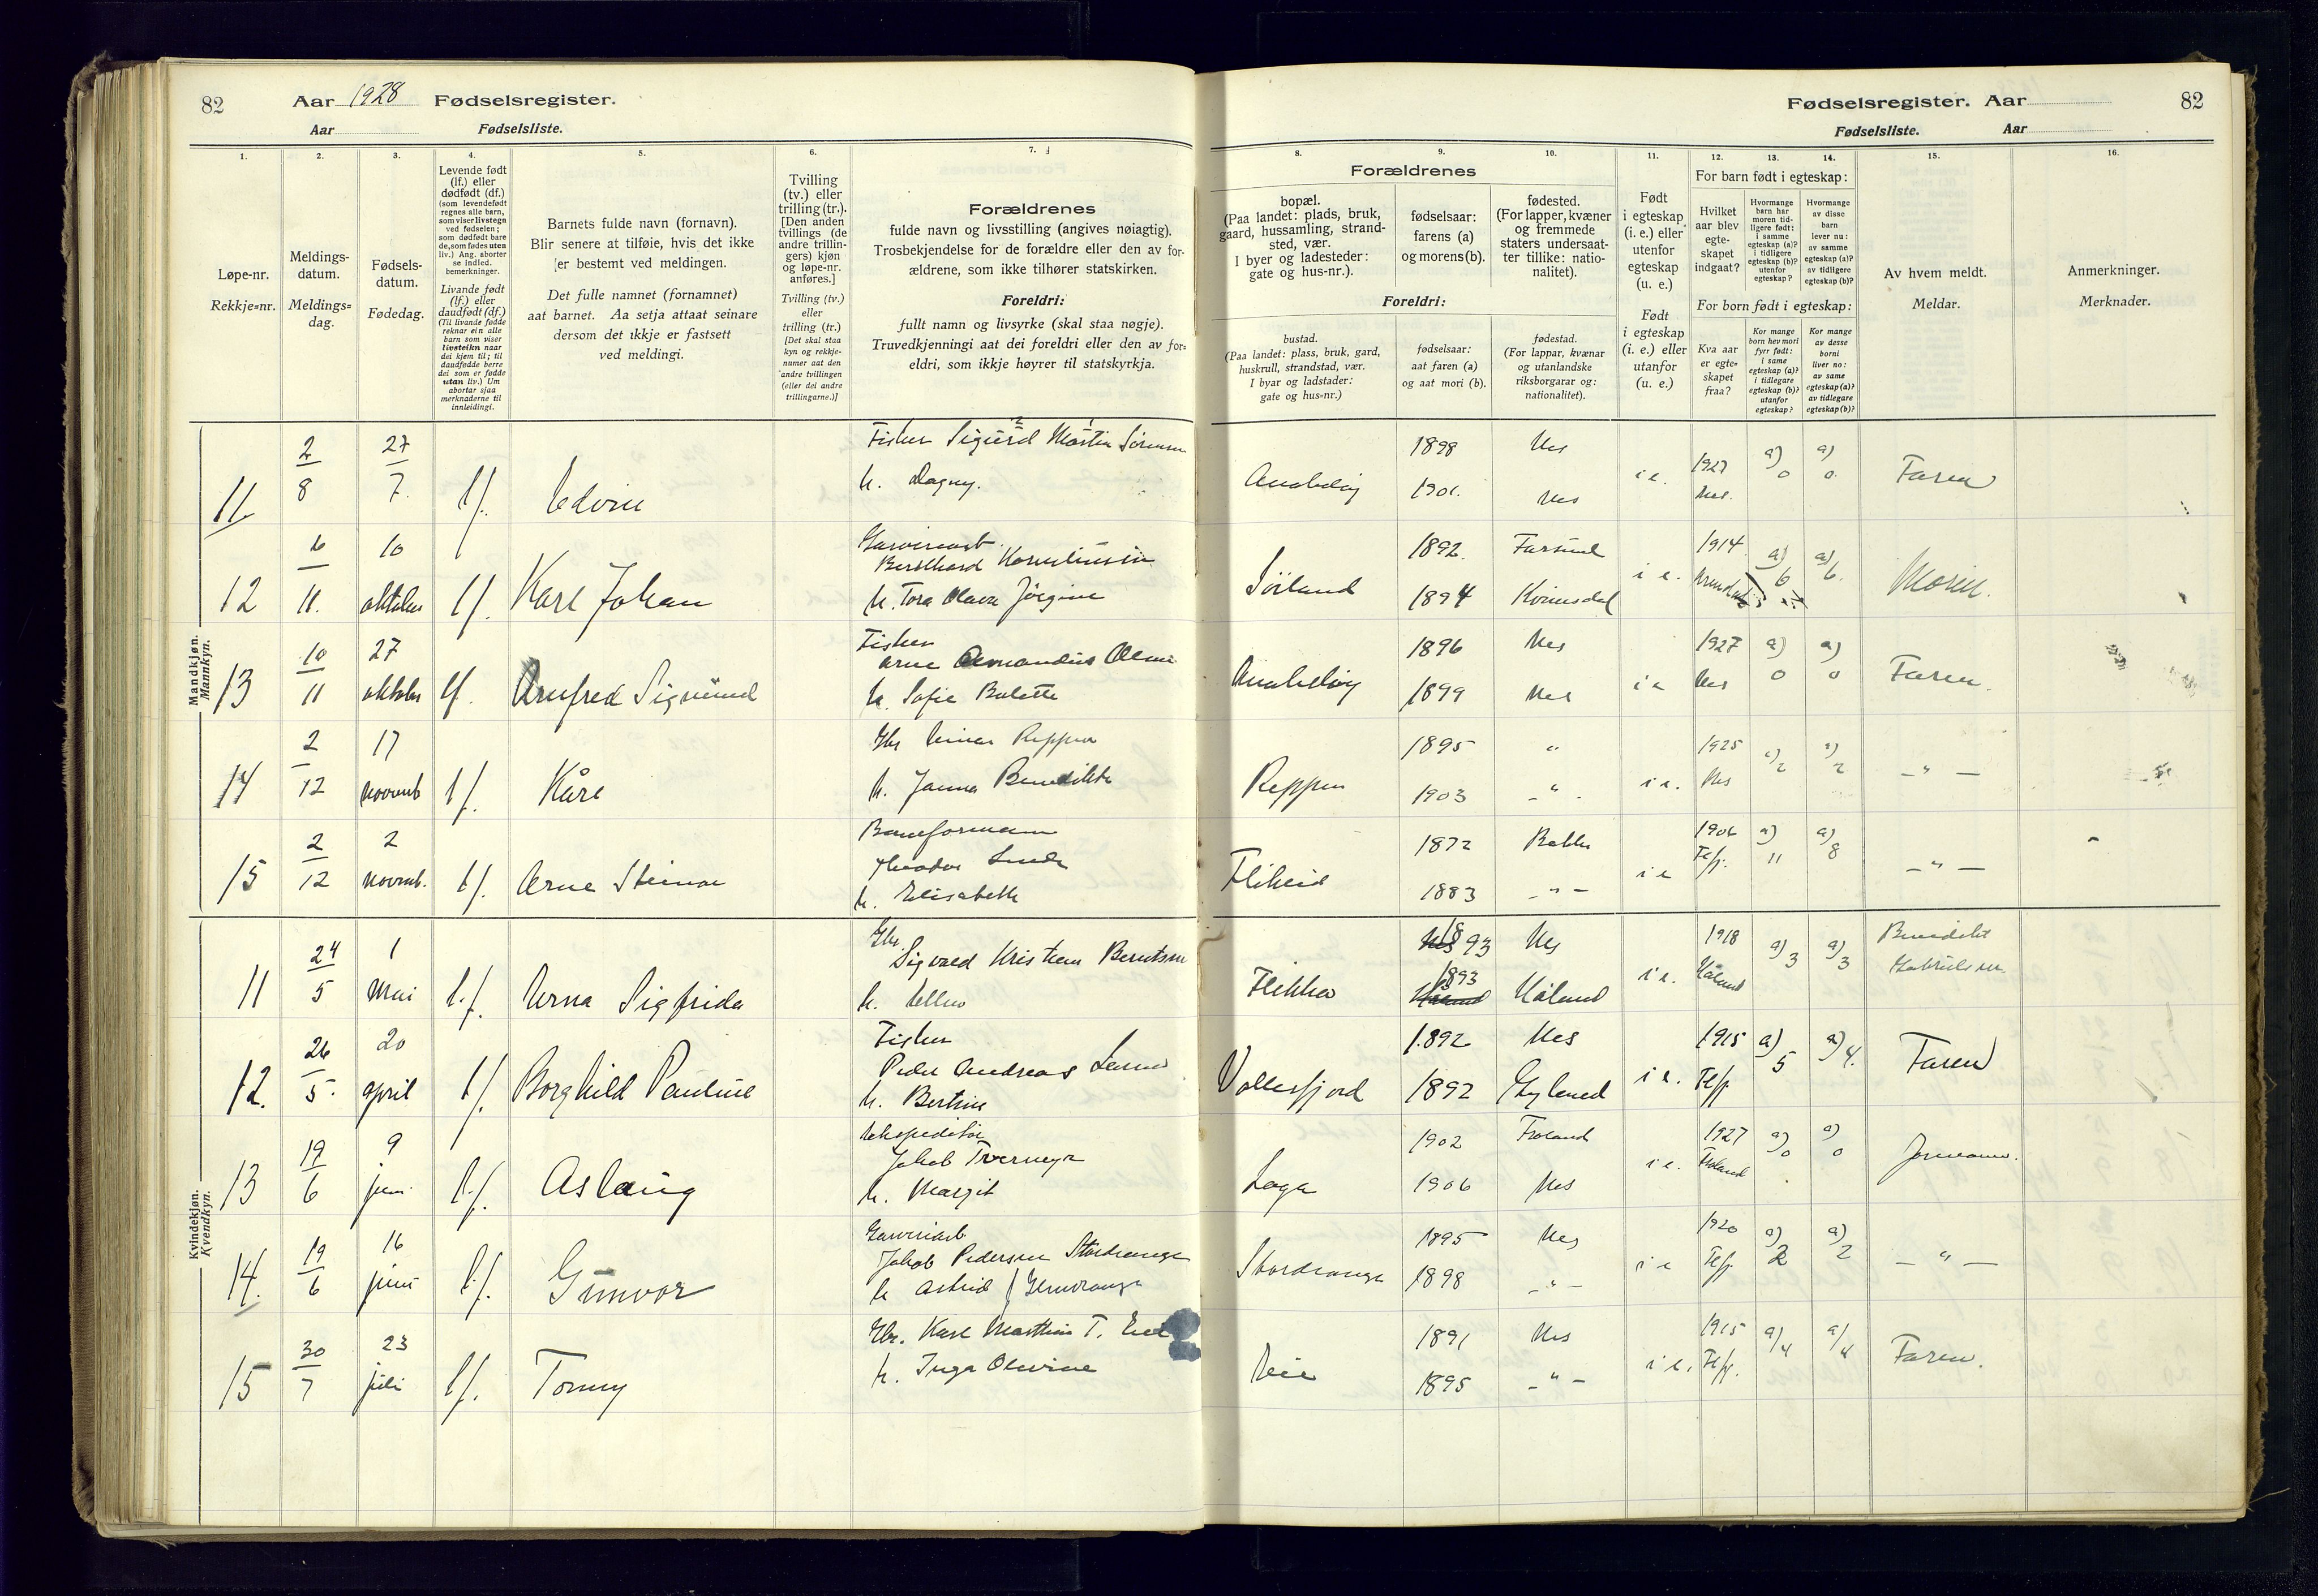 82 Aar 1928 Fødselsregister.
Aar Fødselsliste.
Fødselsregister. Aar 82
Fødselsliste. Aar
1. 2. 3. 4. 5. 6. 7.
8. 9. 10. 11. 12. 13. 14. 15. 16.
Løpe-nr.
Rekkje=nr.
Meldings-
datum.
Meldings=
dag.
Fødsels-
datum.
Fødedag.
Levende født
(lf.) eller
dødfødt (df.)
(som levendefødt
regnes alle barn,
som viser livstegn
ved fødselen;
som dødfødt bare
de, som fødes uten
liv.) Ang. aborter
se indled.
bemerkninger.
Livande født
(lf.) eller
daudfødt (df.)
(Til livande fødde
reknar ein alle
barn som viser
livsteikn naar
dei kjem til; til
daudfødde berre
dei som er fødde
utan liv.) Um
abortar sjaa
merknaderne til
innleidingi.
Barnets fulde navn (fornavn).
Blir senere at tilføie, hvis det ikke
[er bestemt ved meldingen.
Det fulle namnet (fornamnet)
aat barnet. Aa setja attaat seinare
dersom det ikkje er fastsett
ved meldingi.
Tvilling
(tv.) eller
trilling (tr.).
[Den anden
tvillings (de
andre trillin-
gers) kjøn
og løpe-nr.
anføres.]
Tvilling (tv.)
eller
trilling (tr.)
[Det skal staa
kyn og rekkje-
numer aat den
andre tvillingen
(eller dei andre
trillingarne.)]
Forældrenes
fulde navn og livsstilling (angives nøiagtig).
Trosbekjendelse for de forældre eller den av for-
ældrene, som ikke tilhører statskirken.
Foreldri:
fullt namn og livsyrke (skal staa nøgje).
Truvedkjenningi aat dei foreldri eller den av for=
eldri, som ikkje høyrer til statskyrkja.
Forældrenes
bopæl.
(Paa landet: plads, bruk,
gaard, hussamling, strand-
sted, vær.
I byer og ladesteder:
gate og hus-nr.).
fødselsaar:
farens (a)
og morens (b).
fødested.
(For lapper, kvæner
og fremmede
staters undersaat-
ter tillike: natio-
nalitet).
Foreldri:
bustad.
(Paa landet: plass, bruk, gard,
huskrull, strandstad, vær.
I byar og ladstader:
gate og hus=nr.)
fødselsaar:
aat faren (a)
og aat mori (b).
fødestad.
(For lappar, kvænar
og utanlandske
riksborgarar og:
nationalitet).
Født
i egteskap
(i. e.) eller
utenfor
egteskap
(u. e.)
Født
i egteskap
(i. e.) eller
utanfor
(u. e.)
For barn født i egteskap:
Hvilket
aar blev
egte-
skapet
indgaat?
Hvormange
barn har
moren tid-
ligere født:
i samme
egteskap (a)?
i tidligere
egteskap (b)?
utenfor
egteskap?
Hvormange
av disse
barn
lever nu:
av samme
egteskap (a)?
av tidligere
egteskap (b)?
For born født i egteskap:
Kva aar
er egte=
skapet
fraa?
Kor mange
born hev mori
fyrr født:
i same
egteskap (a)?
i tidlegare
egteskap (b)?
utanfor
egteskap?
Kor mange
av desse
borni
liver no:
av same
egteskap (a)?
av tidlegare
egteskap (b)?
Av hvem meldt.
Meldar.
Anmerkninger.
Merknader.
Mandkjøn.
Mannkyn.
11. 2/8 27/7. lf. Edvin Fisker Sigurd Martin Sørensen 1898 Nes 1927 a) 0 a) 0.
h. Dagny. Anabeløy 1901. Nes i e. Nes. Faren
12 6/11. 10 oktober lf. Karl Johan Garveriarb. Bernthard Korneliussen 1892. Farsund 1914 a) 6 a) 6.
h. Tora Olava Jørgine Söiland 1894 Kvinesdal i e. Moren.
13 10/11 27 oktober lf. Arnfred Sigmund Fisker Arne Amandus Olsen 1896 Nes 1927 a) 0 a) 0
h. Sofie Bolette Anabeløy 1899 Nes i e Nes Faren.
14 2/12 17 novemb lf. Kåre Gbr Einar Reppen 1895 " 1925 a) 2 a) 2
h. Janna Benedikte Reppen 1903 - " - i e. Nes - " -
15 2/12 2 novemb. lf. Arne Steinar Baneformann 1872 Bakke 1906 a) 11 a) 8
Theodor Lunde
h. Elisabeth Flikeid 1883 - " - i e Fefj. - " -
Kvindekjøn.
Kvendkyn.
11 24/5 1 Mai l.f. Erna Sigfrida Gbr. Sigvald Kristian Berntsen 1893 Nes 1918 a) 3 a) 3 Benedikt
h. Ellen Flikka 1893 Håland i e. Håland Gabrielsen.
12. 26/5. 20 april lf. Borghild Pauline Fisker 1892 Nes 1915 a) 5 a) 4.
Peder Andreas
h. Bertine Vollesfjord 1892 Gyland i e. Fefj Faren
13 19/6 9 juni lf. Aslaug Ekspeditör 1902 Froland 1927 a) 0 a) 0
Jakob Tvermyr
h. Margit Loga 1906 Nes i e. Froland Jormoren.
14. 19/6 16 juni lf. Gunvor Garveriarb 1895 Nes 1920 a) 2 a) 2
Jakob Pedersen Stordrange
h Astrid Stordrange 1898 - " - i e Fefj. - " -
15 30/7 23 juli lf. Tonny Gbr. Karl Martin T. Eie 1891 Nes 1915 a/ 4 a/ 4
h. Inga Olevine Eeie 1895 - " - i e. Fefj. Faren.